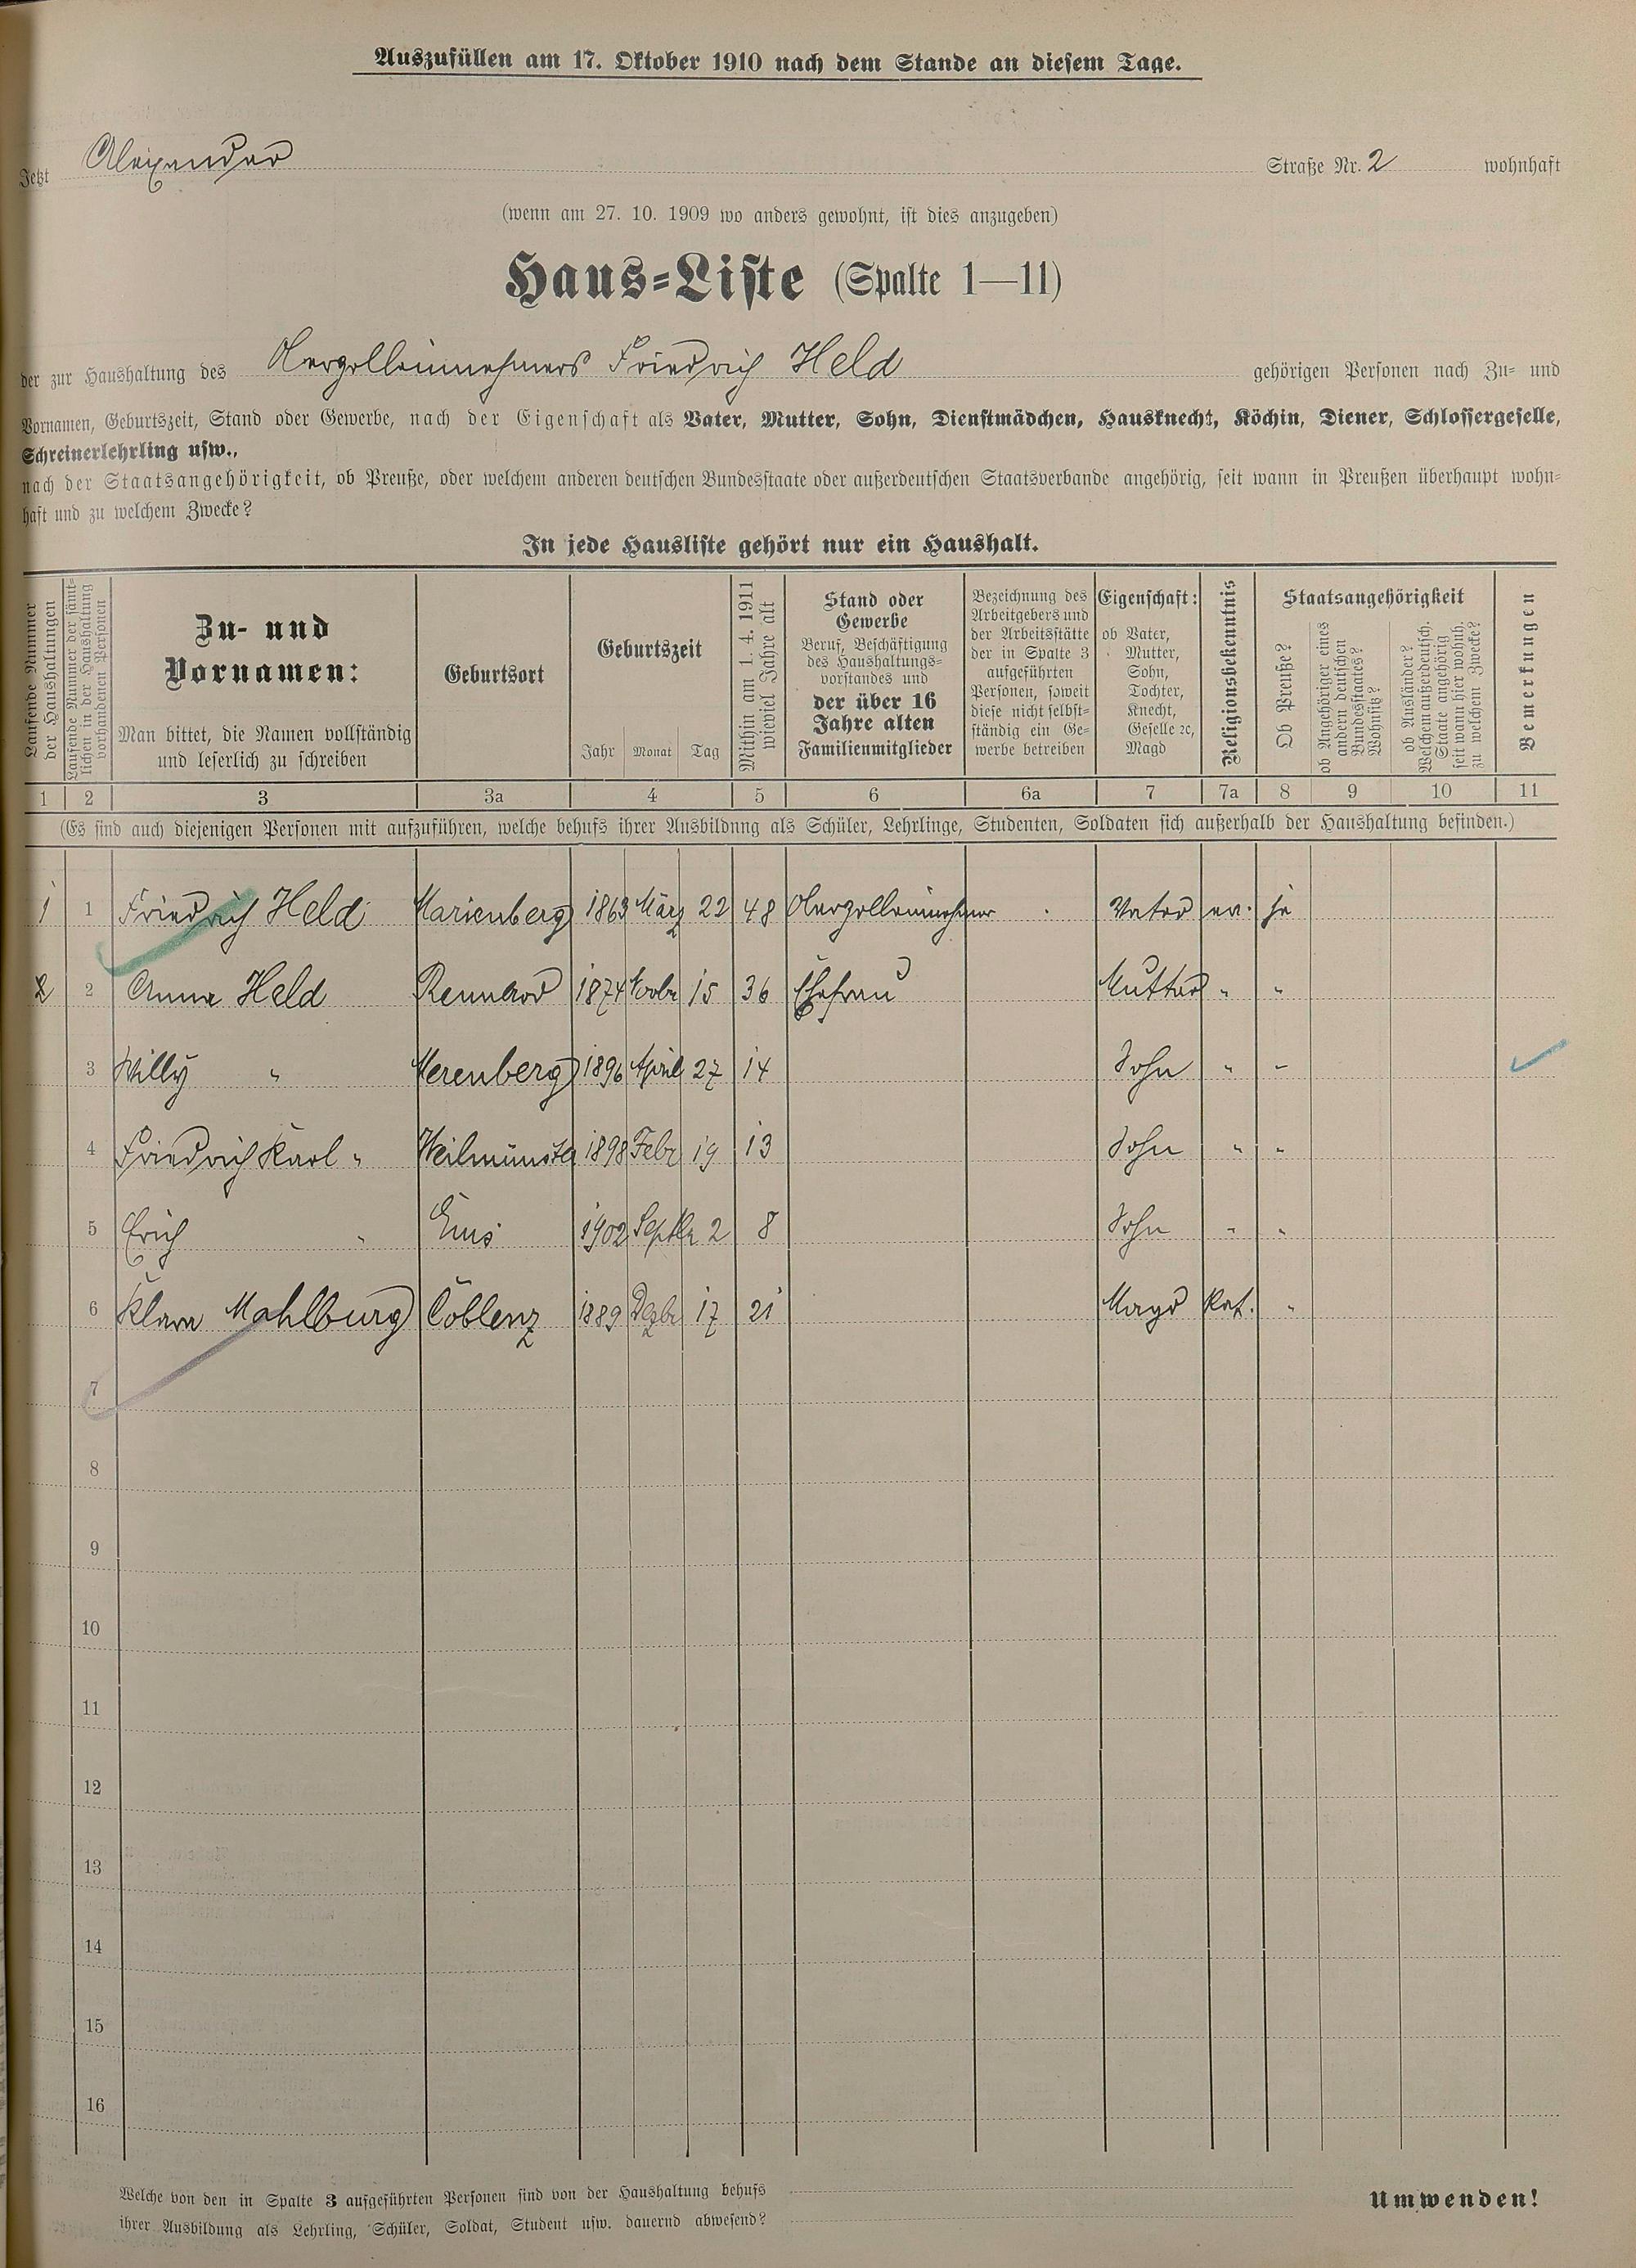 Auszufüllen am 17. Oktober 1910 nach dem Stande an diesem Tage.
Jetzt Alexander Straße Nr. 2 wohnhaft
(wenn am 27. 10. 1909 wo anders gewohnt, ist dies anzugeben)
Haus-Liste (Spalte 1—11)
der zur Haushaltung des Friedrich Held gehörigen Personen nach Zu- und
Vornamen, Geburtszeit, Stand oder Gewerbe, nach der Eigenschaft als Vater, Mutter, Sohn, Dienstmädchen, Hausknecht, Köchin, Diener, Schlossergeselle,
Schreinerlehrling usw.,
nach der Staatsangehörigkeit, ob Preuße, oder welchem anderen deutschen Bundesstaate oder außerdeutschen Staatsverbande angehörig, seit wann in Preußen überhaupt wohn-
haft und zu welchem Zwecke?
In jede Hausliste gehört nur ein Haushalt.
Laufende Nummer
der Haushaltungen
Laufende Nummer der sämt-
lichen in der Haushaltung
vorhandenen Personen
Zu- und
Vornamen:
Man bittet, die Namen vollständig
und leserlich zu schreiben
Geburtsort
Geburtszeit
Jahr Monat Tag
Mithin am 1. 4. 1911
wieviel Jahre alt
Stand oder
Gewerbe
Beruf, Beschäftigung
des Haushaltungs-
vorstandes und
der über 16
Jahre alten
Familienmitglieder
Bezeichnung des
Arbeitgebers und
der Arbeitsstätte
der in Spalte 3
aufgeführten
Personen, soweit
diese nicht selbst-
ständig ein Ge-
werbe betreiben
Eigenschaft:
ob Vater,
Mutter,
Sohn,
Tochter,
Knecht,
Geselle ꝛc,
Magd
Religionsbekenntnis
Staatsangehörigkeit
Ob Preuße?
ob Angehöriger eines
andern deutschen
Bundesstaates?
Wohnsitz?
ob Ausländer?
Welchem außerdeutsch.
Staate angehörig
seit wann hier wohnh.
zu welchem Zwecke?
Bemerkungen
1 2 3 3a 4 5 6 6a 7 7a 8 9 10 11
(Es sind auch diejenigen Personen mit aufzuführen, welche behufs ihrer Ausbildung als Schüler, Lehrlinge, Studenten, Soldaten sich außerhalb der Haushaltung befinden.)
1 1 Friedrich Held Marienberg 1863 März 22 48 Vater ev. ja
2 2 Anna Held Rennerod 1874 Novbr 15 36 Ehefrau Mutter " "
3 Willy " Merenberg 1896 April 27 14 Sohn " "
4 Friedrich Karl " Weilmünster 1898 Febr 19 13 Sohn " "
5 Erich " Ems 1902 Septbr 2 8 Sohn " "
6 Klara Mahlburg Coblenz 1889 Dezbr 17 21 Magd Kat. "
7
8
9
10
11
12
13
14
15
16
Welche von den in Spalte 3 aufgeführten Personen sind von der Haushaltung behufs
ihrer Ausbildung als Lehrling, Schüler, Soldat, Student usw. dauernd abwesend?
Umwenden!